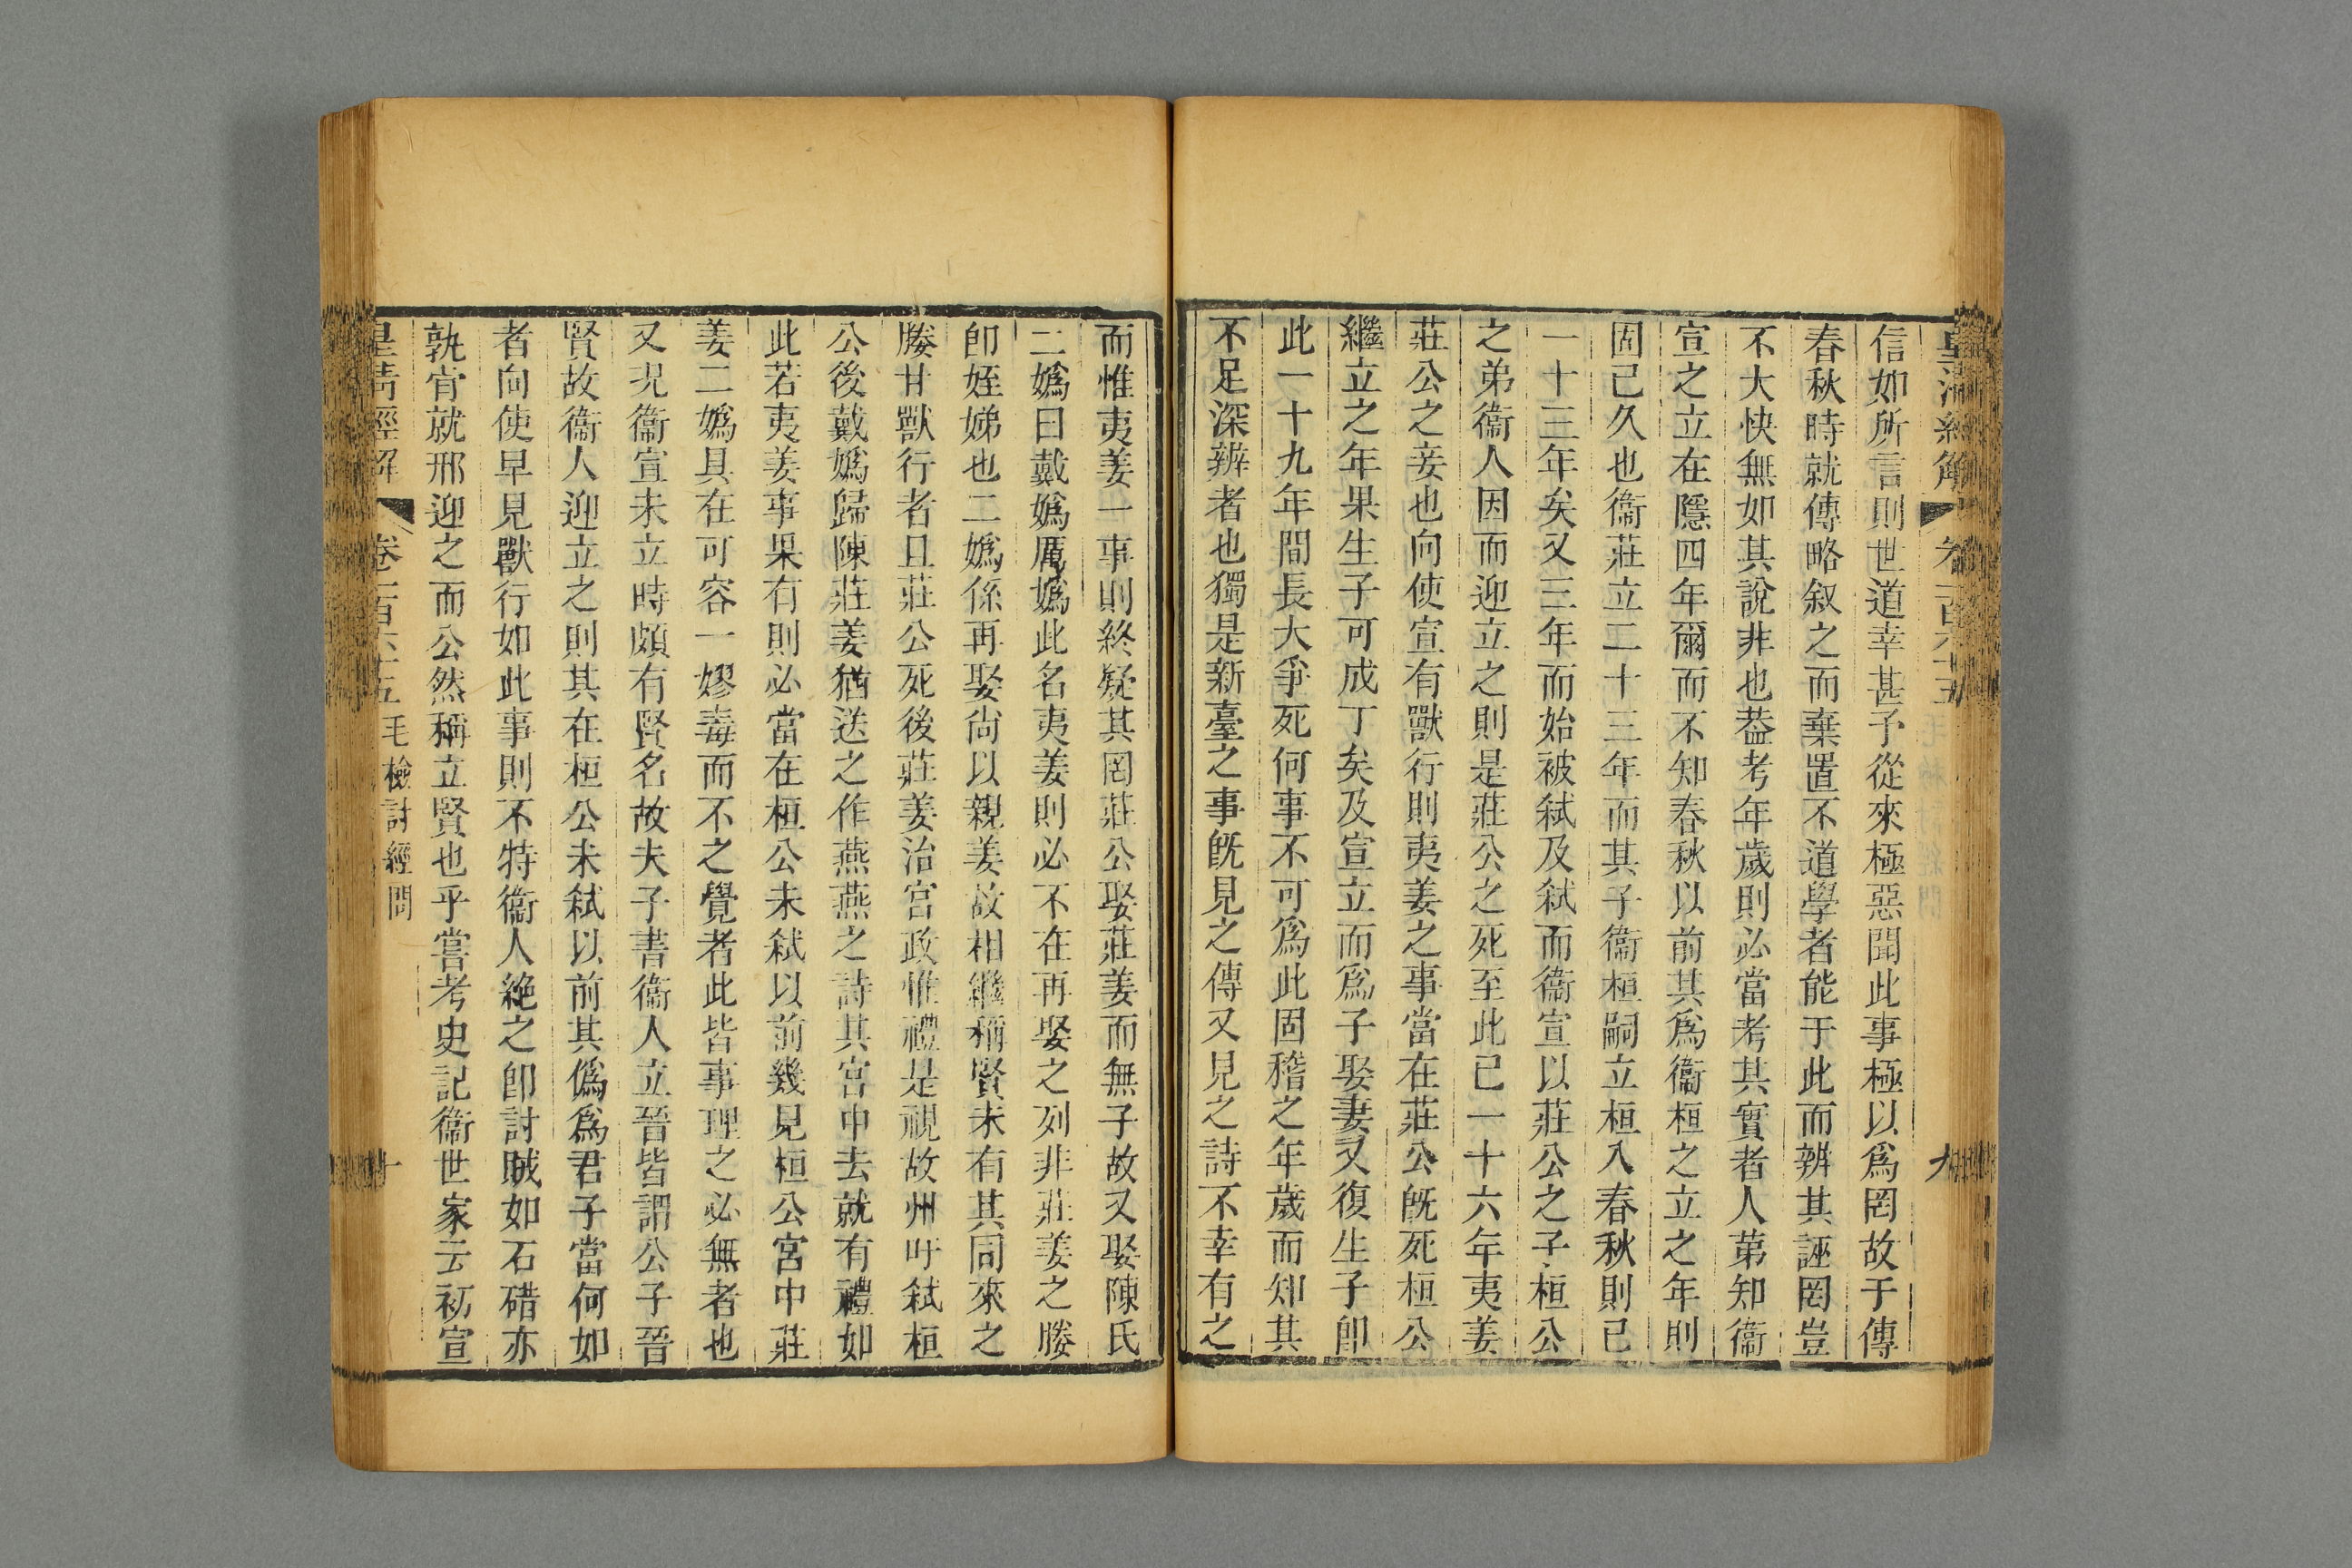 皇清經解 卷一百六十五 九
信如所言則世道幸甚予從來極惡聞此事極以爲罔故于傳
春秋時就傳略叙之而棄置不道學者能于此而辨其誣罔豈
不大快無如其說非也葢考年歲則必當考其實者人第知衞
宣之立在隱四年爾而不知春秋以前其爲衞桓之立之年則
固已久也衞莊立二十三年而其子衞桓嗣立桓入春秋則已
一十三年矣又三年而始被弑及弑而衞宣以莊公之子桓公
之弟衞人因而迎立之則是莊公之死至此已一十六年夷姜
莊公之妾也向使宣有獸行則夷姜之事當在莊公旣死桓公
繼立之年果生子可成丁矣及宣立而爲子娶妻又復生子卽
此一十九年間長大爭死何事不可爲此固稽之年歲而知其
不足深辨者也獨是新臺之事旣見之傳又見之詩不幸有之
而惟夷姜一事則終疑其罔莊公娶莊姜而無子故又娶陳氏
二嬀曰戴嬀厲嬀此名夷姜則必不在再娶之列非莊姜之媵
卽姪娣也二嬀係再娶尙以親姜故相繼稱賢未有其同來之
媵甘獸行者且莊公死後莊姜治宮政惟禮是視故州吁弑桓
公後戴嬀歸陳莊姜猶送之作燕燕之詩其宮中去就有禮如
此若夷姜事果有則必當在桓公未弑以前幾見桓公宮中莊
姜二嬀具在可容一嫪毐而不之覺者此皆事理之必無者也
又況衞宣未立時頗有賢名故夫子書衞人立晉皆謂公子晉
賢故衞人迎立之則其在桓公未弑以前其僞爲君子當何如
者向使早見獸行如此事則不特衞人絕之卽討賊如石碏亦
孰肯就邢迎之而公然稱立賢也乎嘗考史記衞世家云初宣
皇清經解 卷一百六十五 毛檢討經問 十